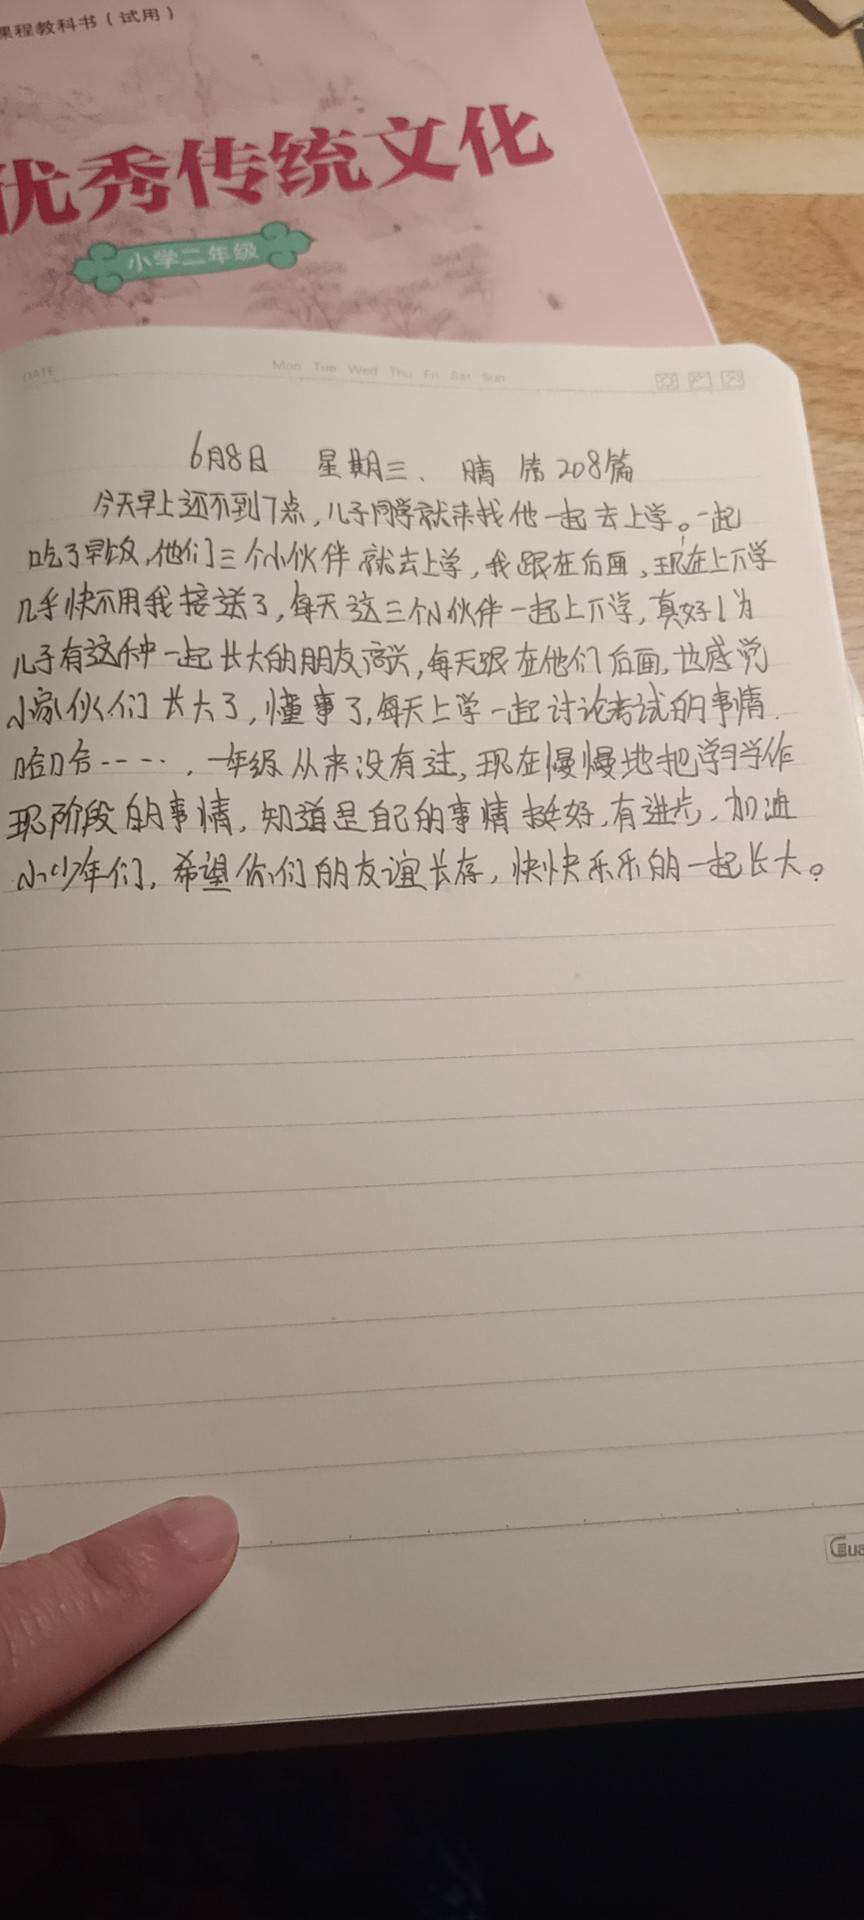 课程教科书（试用）
优秀传统文化
小学二年级
DATE
Mon Tue Wed Thu Fri Sat Sun
6月8日 星期三、晴 第208篇
今天早上还不到7点，儿子同学就来找他一起去上学。一起
吃了早饭，他们三个小伙伴就去上学，我跟在后面，现在上下学
几乎快不用我接送了，每天这三个小伙伴一起上下学，真好！为
儿子有这种一起长大的朋友高兴，每天跟在他们后面，也感觉
小家伙们长大了，懂事了，每天上学一起讨论考试的事情.
哈哈-----，一年级从来没有过，现在慢慢地把学习当作
现阶段的事情，知道是自己的事情挺好，有进步，加油
小少年们，希望你们的友谊长存，快快乐乐的一起长大。